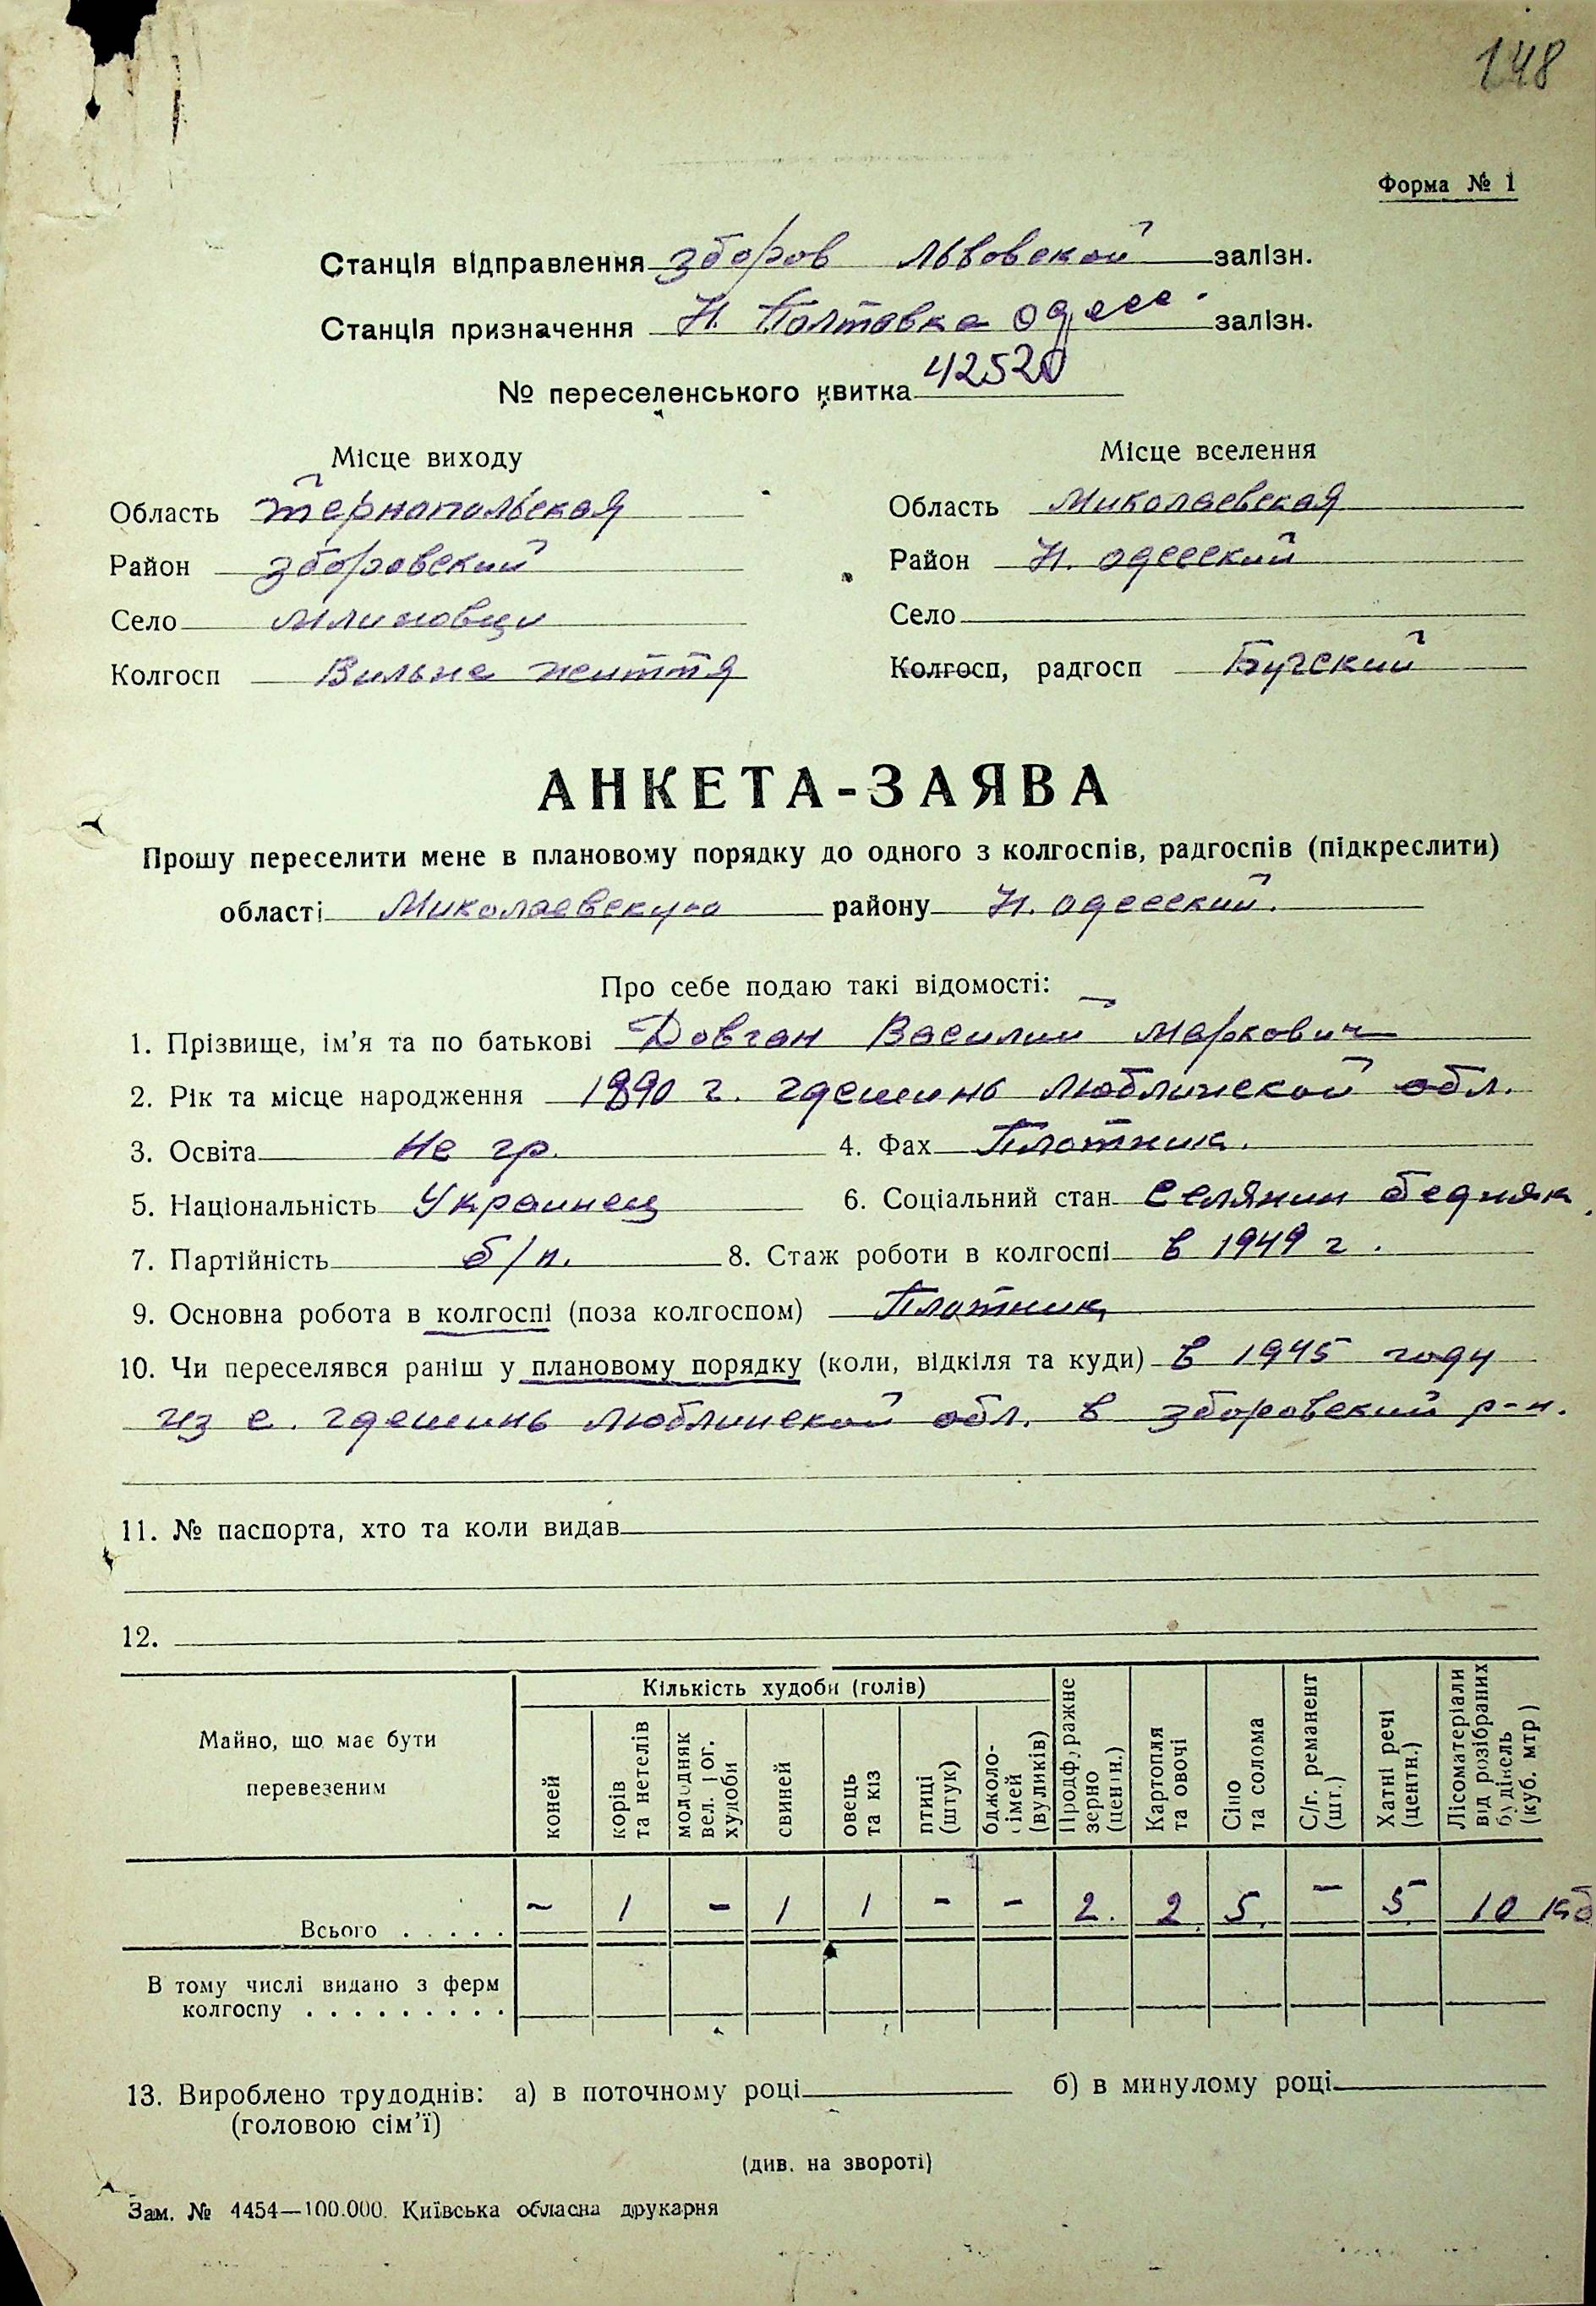 148
Форма № 1
Станція відправлення зборов Львовской залізн.
Станція призначення Н. Полтавка одесс. залізн.
№ переселенського квитка 42520
Місце виходу Місце вселення
Область тернопольская Область Миколаевская
Район зборовский Район Н. одесский
Село млиновци Село
Колгосп Вильне життя Колгосп, радгосп Бугский
АНКЕТА-ЗАЯВА
Прошу переселити мене в плановому порядку до одного з колгоспів, радгоспів (підкреслити)
області Миколаевскую району Н. одесский.
Про себе подаю такі відомості:
1. Прізвище, ім’я та по батькові Довган Василий Маркович
2. Рік та місце народження 1890 г. гдешинь люблинской обл.
3. Освіта Не гр. 4. Фах Плотник.
5. Національність Украинец 6. Соціальний стан Селянин бедняк.
7. Партійність б/п. 8. Стаж роботи в колгоспі в 1949 г.
9. Основна робота в колгоспі (поза колгоспом) Плотник
10. Чи переселявся раніш у плановому порядку (коли, відкіля та куди) в 1945 году
из с. гдешинь люблинской обл. в зборовский р-н.
11. № паспорта, хто та коли видав
12.
Майно, що має бути перевезеним
Кількість худоби (голів)
коней
корів та нетелів
молодняк вел. рог. худоби
свиней
овець та кіз
птиці (штук)
бджоло-сімей (вуликів)
Продфуражне зерно (центн.)
Картопля та овочі
Сіно та солома
С/г. реманент (шт.)
Хатні речі (центн.)
Лісоматеріали від розібраних будівель (куб. мтр)
Всього . . . . . – 1 – 1 1 – – 2. 2. 5. – 5 10 кб
В тому числі видано з ферм
колгоспу . . . . . . . . .
13. Вироблено трудоднів: а) в поточному році б) в минулому році
(головою сім’ї)
(див. на звороті)
Зам. № 4454—100.000. Київська обласна друкарня